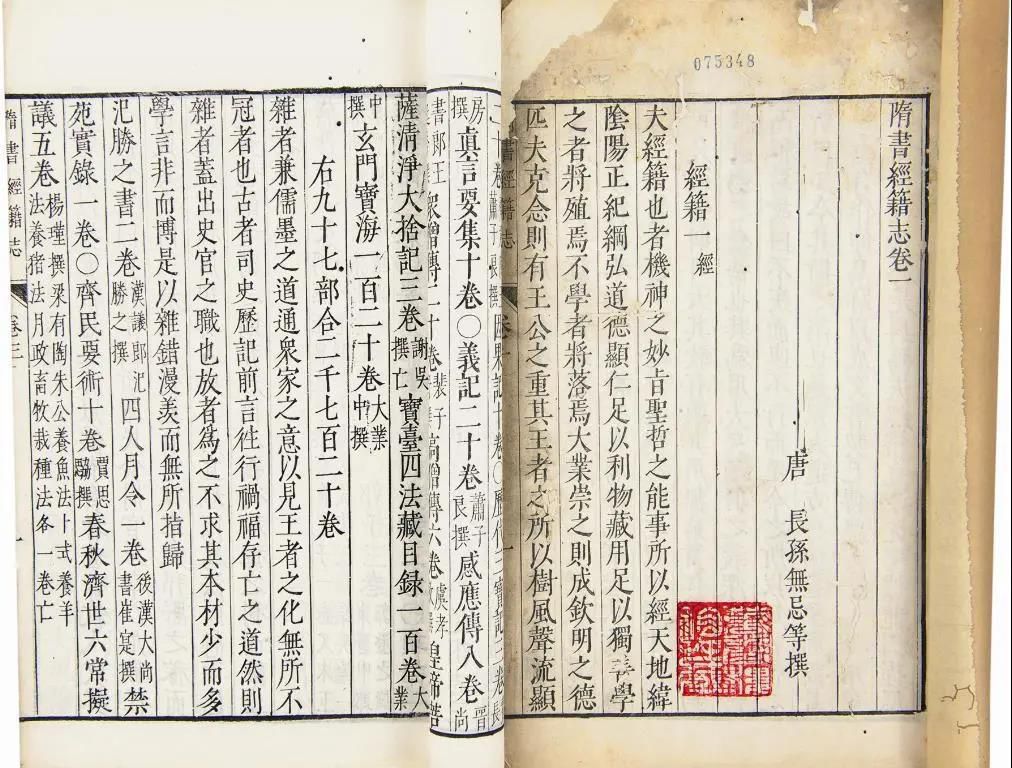 075348
隋書經籍志卷一
唐 長孫無忌等撰
經籍一 經
夫經籍也者機神之妙旨聖哲之能事所以經天地緯
隂陽正紀綱弘道德顯仁足以利物藏用足以獨善學
之者將殖焉不學者將落焉大業崇之則成欽明之德
匹夫克念則有王公之重其王者之所以樹風聲流顯
書經籍志
房撰 眞言要集十卷〇義記二十卷 蕭子良撰 感應傳八卷 晉尚
書郎王
薩淸淨大捨記三卷 謝吳撰亡 寶臺四法藏目録一百卷 大業
中撰 玄門寶海一百二十卷 大業中撰
右九十七部合二千七百二十卷
雜者兼儒墨之道通衆家之意以見王者之化無所不
冠者也古者司史歷記前言徃行禍福存亡之道然則
雜者蓋出史官之職也放者爲之不求其本材少而多
學言非而博是以雜錯漫羨而無所指歸
氾勝之書二卷 漢議郎氾勝之撰 四人月令一卷 後漢大尚書崔寔撰 禁
苑實錄一卷〇齊民要術十卷 賈思勰撰 春秋濟世六常擬
議五卷 楊瑾撰梁有陶朱公養魚法卜式養羊法養猪法月政畜牧栽種法各一卷亡
隋書經籍志
卷三